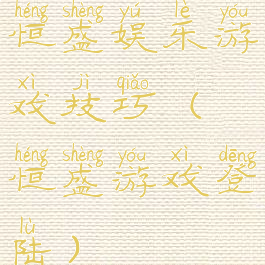 héng shèng yú lè yóu
恒盛娱乐游
xì jì qiǎo
戏技巧（
héng shèng yóu xì dēng
恒盛游戏登
lù
陆）